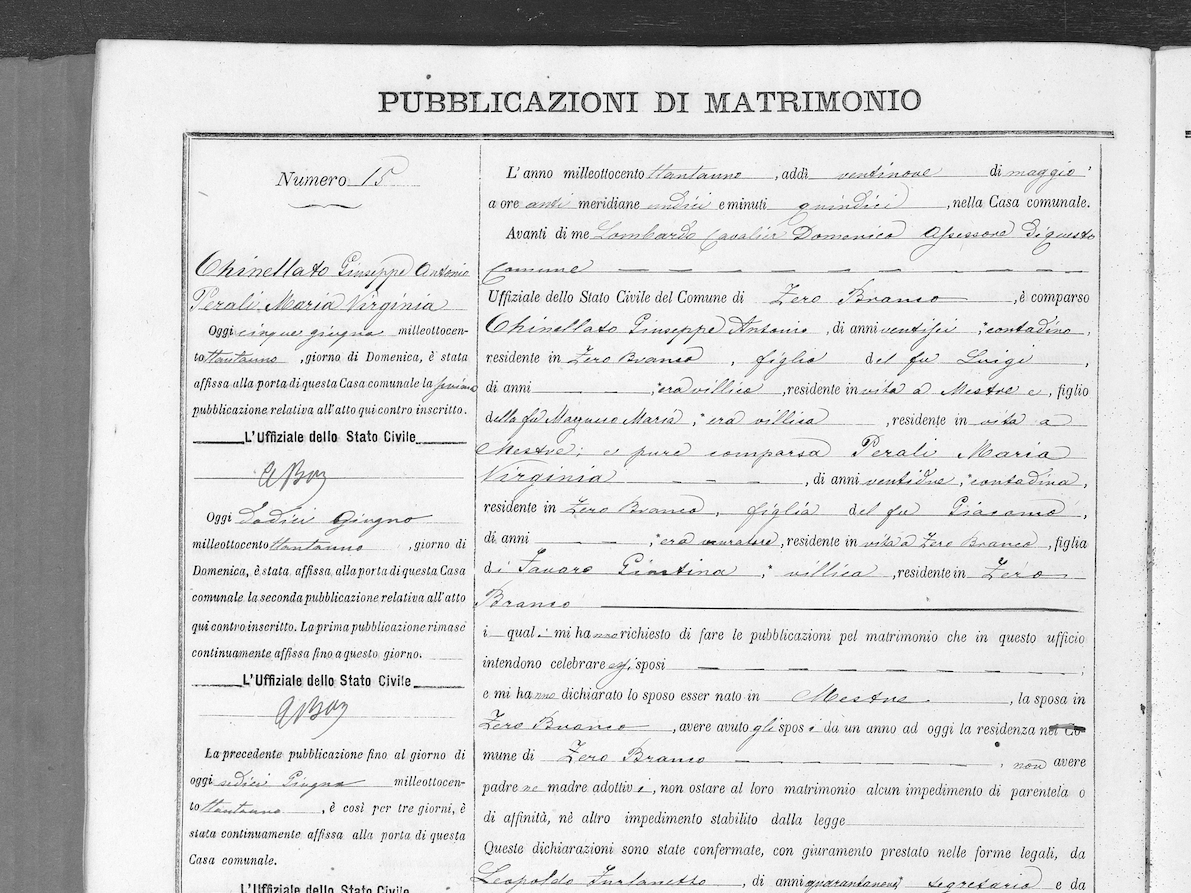 PUBBLICAZIONI DI MATRIMONIO
Numero 15
Chinellato Giuseppe Antonio
Perali Maria Virginia
Oggi cinque giugno milleottocen-
to ttantanno, giorno di Domenica, è stata
affissa alla porta di questa Casa comunale la prima
pubblicazione relativa all'atto qui contro inscritto.
L'Uffiziale dello Stato Civile
Oggi dodici Giugno
milleottocento ttantanno, giorno di
Domenica, è stata affissa alla porta di questa Casa
comunale la seconda pubblicazione relativa all'atto
qui contro inscritto. La prima pubblicazione rimase
continuamente affissa fino a questo giorno.
L'Uffiziale dello Stato Civile
La precedente pubblicazione fino al giorno di
oggi sedici Giugno milleottocen-
to ttantanno, è così per tre giorni, è
stata continuamente affissa alla porta di questa
Casa comunale.
L'Uffiziale dello Stato Civile
L'anno milleottocento ttantanno, addì ventinove di maggio
a ore anti meridiane undici e minuti quindici, nella Casa comunale.
Avanti di me Lombardo Cavalier Domenico Assessore di questo
Comune — — — — — — — — — — —
Uffiziale dello Stato Civile del Comune di Zero Branco —, è comparso
Chinellato Giuseppe Antonio, di anni ventisei, contadino,
residente in Zero Branco, figlio del fu Luigi,
di anni — —, era villico, residente in vita a Mestre e, figlio
della fu Maria, era villica, residente in vita a
Mestre; e pure comparsa Perali Maria
Virginia — — —, di anni ventidue, contadina,
residente in Zero Branco, figlia del fu Giacomo,
di anni — —, era, residente in vita a Zero Branco, figlia
di Favaro Giustina, villica, residente in Zero
Branco
i quali mi hanno richiesto di fare le pubblicazioni pel matrimonio che in questo ufficio
intendono celebrare essi sposi — — — — — — — — — ;
e mi hanno dichiarato lo sposo esser nato in Mestre, la sposa in
Zero Branco, avere avuto gli sposi da un anno ad oggi la residenza nel Co-
mune di Zero Branco — — — — — — — ; non avere
padre ne madre adottivi, non ostare al loro matrimonio alcun impedimento di parentela o
di affinità, nè altro impedimento stabilito dalla legge
Queste dichiarazioni sono state confermate, con giuramento prestato nelle forme legali, da
Leopoldo Furlanetto, di anni quarantanove segretario e da